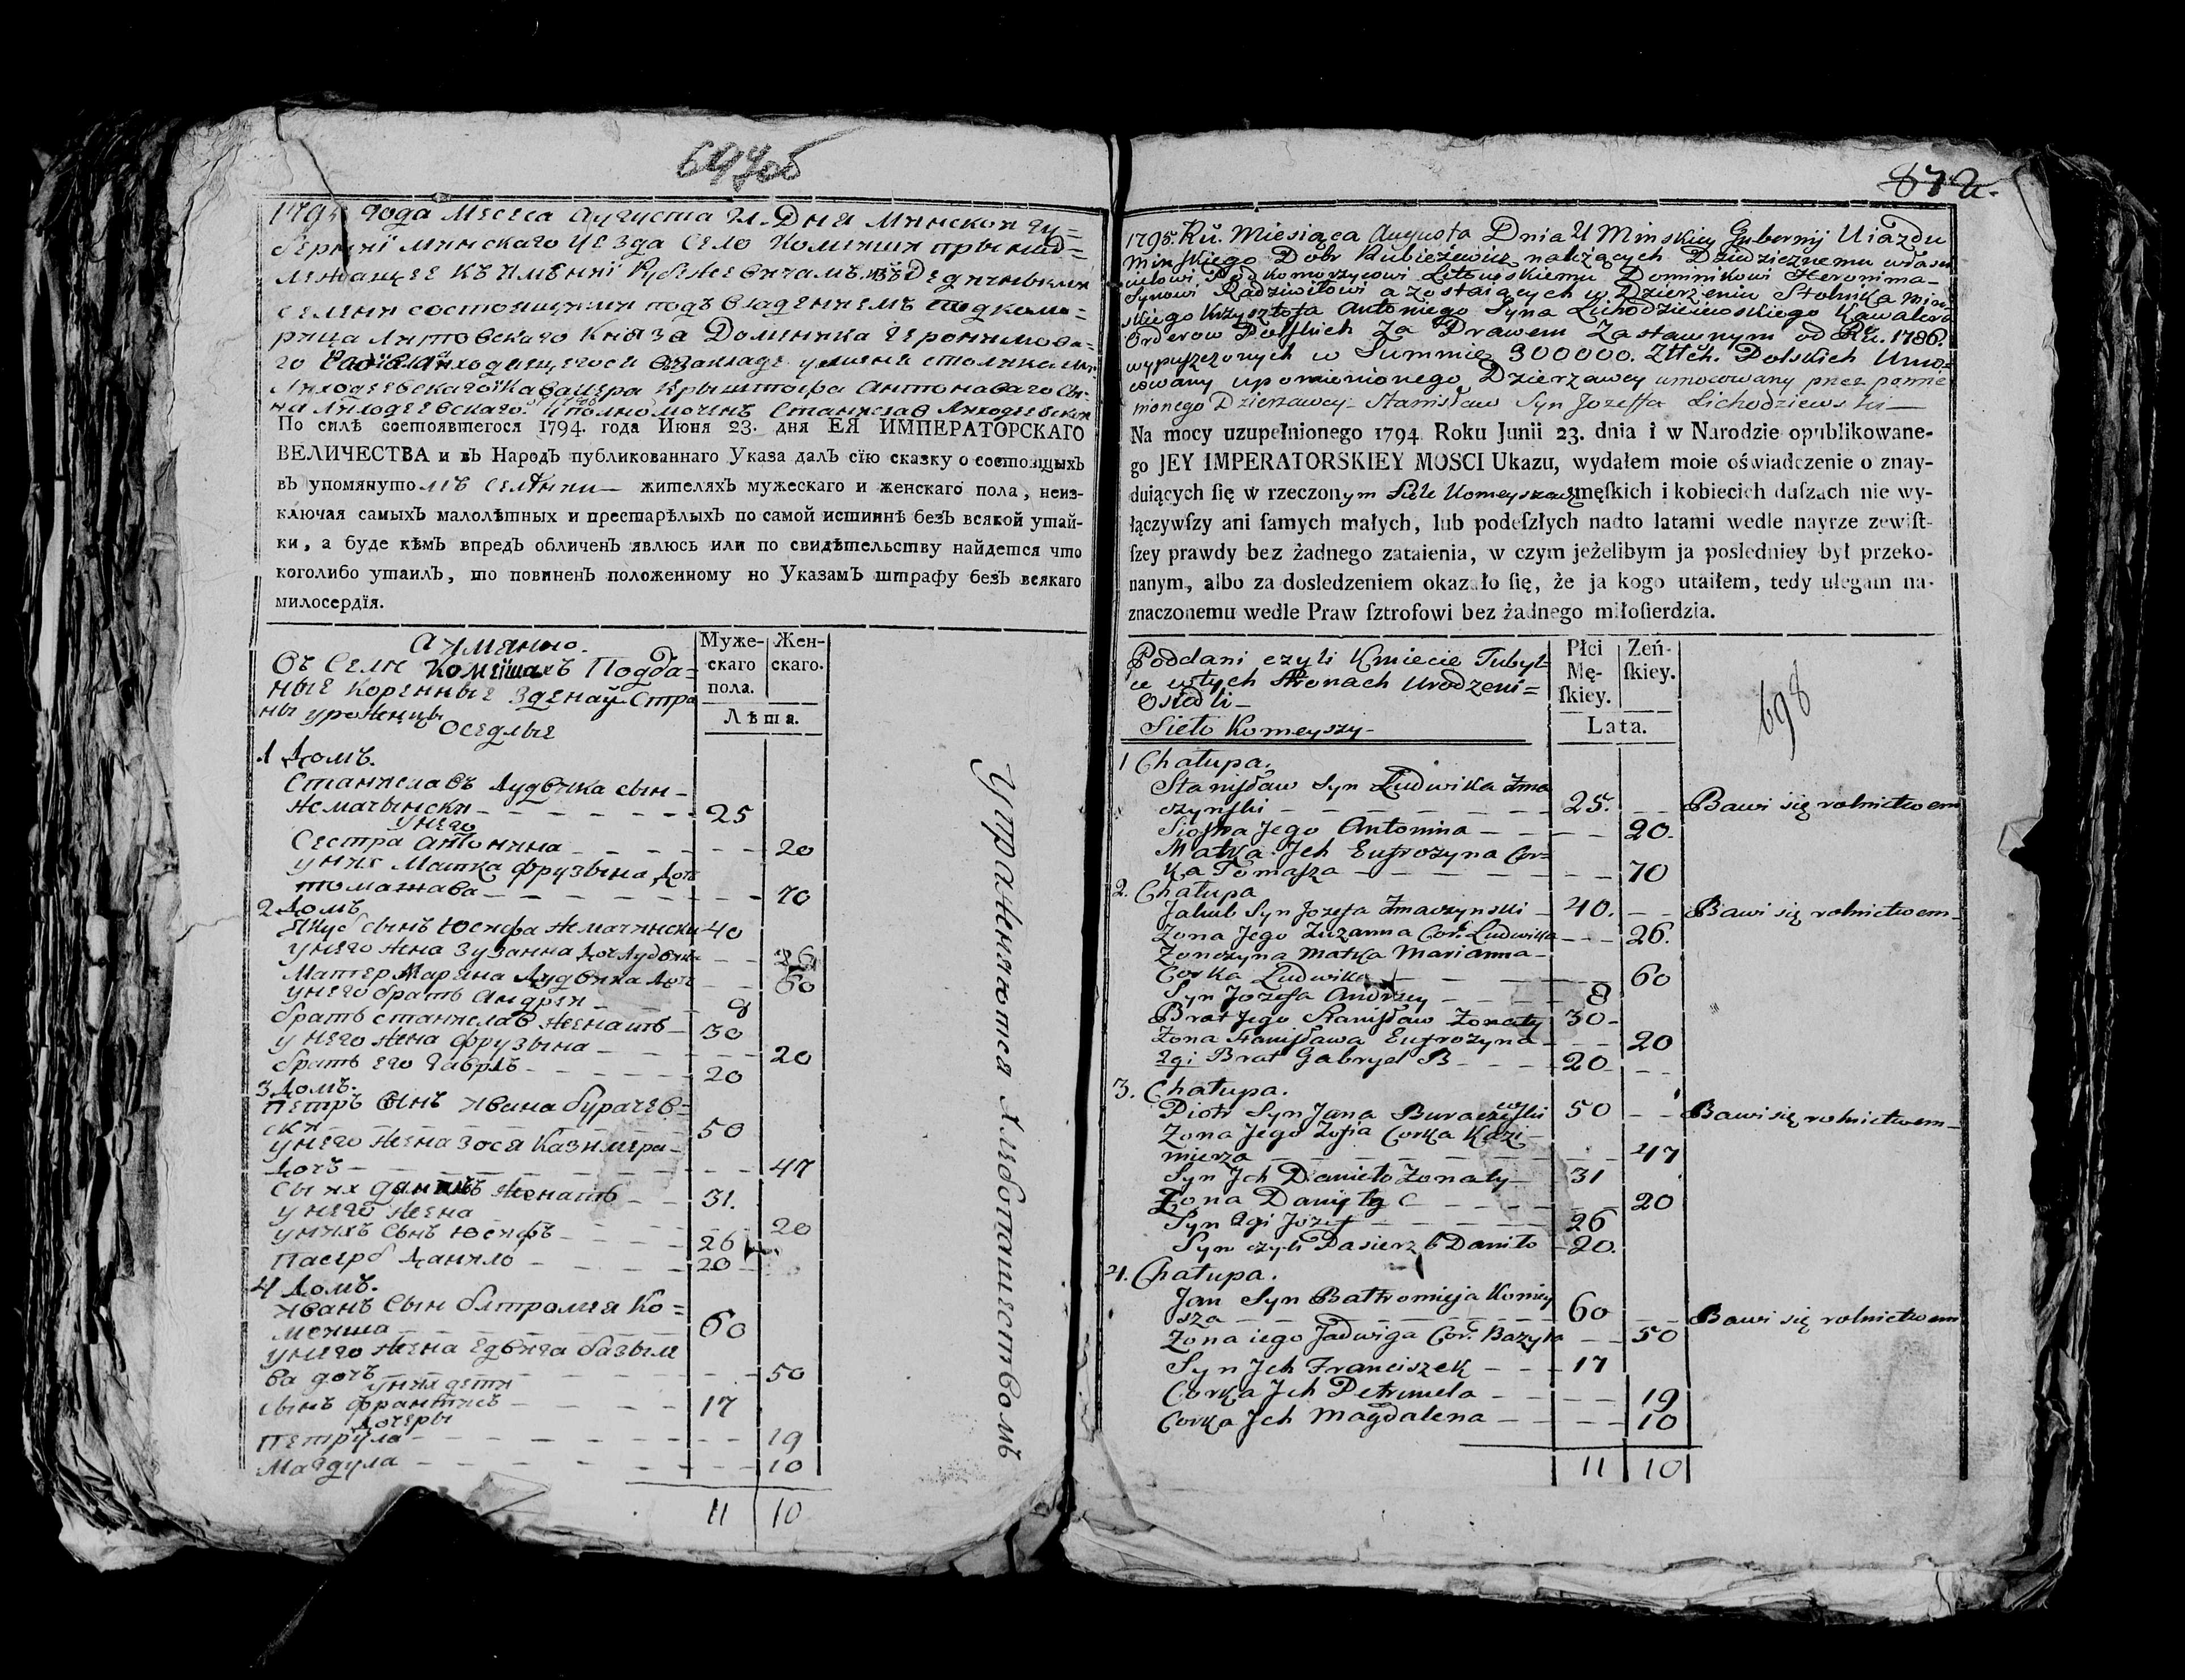 697об
1795 года Месеca Аугуста 21 Дня Минской гу=
бернїи минскаго уезда Село Комейши принад=
лежащее къ Имѣнїи Рубежевичамъ
селени состоящими подъ владениемъ подкомо=
рица Литовскаго Княза Доминика Геронимова=
го находящегося взакладе у меня столника
Лиходзевскаго Кавалера Крыштофа Антонаваго Сы-
на Лиходзевскаго. Станислав Лиходзевски
По силѣ состоявшегося 1794. года Июня 23. дня ЕЯ ИМПЕРАТОРСКАГО
ВЕЛИЧЕСТВА и въ Народъ публикованнаго Указа далъ сїю сказку о состоящыхъ
въ упомянутомъ селѣнии — жителяхъ мужескаго и женскаго пола, неиз-
ключая самыхъ малолѣтных и престарѣлыхъ по самой истиннѣ безъ всякой утай-
ки, а буде кѣмъ впредъ обличенъ явлюсь или по свидѣтельству найдется что
коголибо утаилъ, то повиненъ положенному по Указамъ штрафу безъ всякаго
милосердїя.
А имянно.
Въ Селе Комеишахъ Подда=
ные коренные Зденай Стра
ны уроженцы
оседлые
Муже-
скаго
пола.
Жен-
скаго.
Лѣта.
1 Домъ.
Станиславъ Лудвика сын-
Жмачынски - - - 25
унего
Сестра антонина - - - 20
уних Матка Фрузына доч
томашава - - - 70
2 Домъ
Якуб сынъ Юсифа Жмачински 40
унего жена Зузанна доч Лудвика - - 26
Матер Марына Лудвика доч - - 60
унего братъ Андрей - 8
братъ станислав женатъ - 30
унего жена Фрузына - - - 20
братъ его Гаврлъ - - - 20
3 Домъ.
Петръ сынъ Ивана бурачев=
ски - - - 50
унего жена Зося Казимера-
дочъ - - - 47
Сынъ их данилъ женатъ - - 31.
унего жена - - 20
унихъ сынъ Юсифъ - - - 26
Пасерб Данило - - - 20
4 Домъ.
Иванъ Сын балтромея Ко=
меиша - - - 60
унего жена Едвига базыле
ва дочъ - - - 50
уних дети
сынъ франтишъ - - - 17
дочеры
Петрула - - - 19
Магдула - - - 10
11 10
Упражняются хлебопашествомъ
872.
1795. Ru. Miesiąca Augusta Dnia 21 Minskiey Gubernij Uiazdu
Minskiego Dobr Rubieżewicz należących Dziedzicznemu właści
cielowi Podkomorzycowi Litewskiemu Dominikowi Heronima-
Synowi Radziwiłowi a zostaiących w Dzierzeniu Stolnika Min
skiego Krzysztofa Antoniego Syna Lichodziewskiego Kawalera
Orderow Polskich Za Prawem Zastawnym od Ru. 1786.
wypuszczonych w Summie 300000. Złłch. Polskich Umo=
cowany upomionionego Dzierzawcy umocowany przez pomie
nionego Dzierzawcy - Stanisław Syn Jozeffa Lichodziewski —
Na mocy uzupełnionego 1794 Roku Junii 23. dnia i w Narodzie opublikowane-
go JEY IMPERATORSKIEY MOSCI Ukazu, wydałem moie oświadczenie o znay-
duiących ſię w rzeczonym Siele Komeyszach męſkich i kobiecich duſzach nie wy-
łączywſzy ani ſamych małych, lub podeſzłych nadto latami wedle nayrze zewiſt-
ſzey prawdy bez żadnego zataienia, w czym jeżelibym ja posledniey był przeko-
nanym, albo za dosledzeniem okazało ſię, że ja kogo utaiłem, tedy ulegam na-
znaczonemu wedle Praw ſztrofowi bez żadnego miłoſierdzia.
Poddani czyli Kmiecie Tubyl=
ce wtych stronach Urodzeni=
Osiedli-
Sieło Komeyszy-
Płci
Mę-
ſkiey.
Zeń-
ſkiey.
Lata.
698
1 Chałupa.
Stanisław Syn Ludwika Zma
szynski - - - 25. - - Bawi się rolnictwem
Siostra Jego Antonina - - - 20.
Matka Jch Eufrozyna Cor=
ka Tomasza - - - 70
2. Chałupa
Jakub Syn Jozefa Zmaczynski - 40. - - Bawi się rolnictwem-
Zona Jego Zuzanna Cor: Ludwika - - - 26.
Zonczyna Matka Marianna -
Corka Ludwika - - - 60
Syn Jozefa Andrzey - - - 8
Brat Jego Stanisław Zonaty 30-
Zona Stanisława Eufrozyna - - - 20
2gi Brat Gabryel B - - - 20 - -
3. Chałupa.
Piotr Syn Jana Buraczewski 50 - - Bawi się rolnictwem-
Zona Jego Zofia Corka Kazi-
mierza - - - 47
Syn Jch Daniełło Zonaty - 31
Zona Daniły C - - - 20
Syn 2gi Jozef - - - 26
Syn czyli Pasierzb Daniło - 20.
4. Chałupa.
Jan Syn Bałtromieja Komey
sza - - - 60 - - Bawi się rolnictwem
Zona iego Jadwiga Cor: Bazyla - - 50
Syn Jch Franciszek - - - 17
Corka Jch Petrunela - - - 19
Corka Jch Magdalena - - - 10
11 10